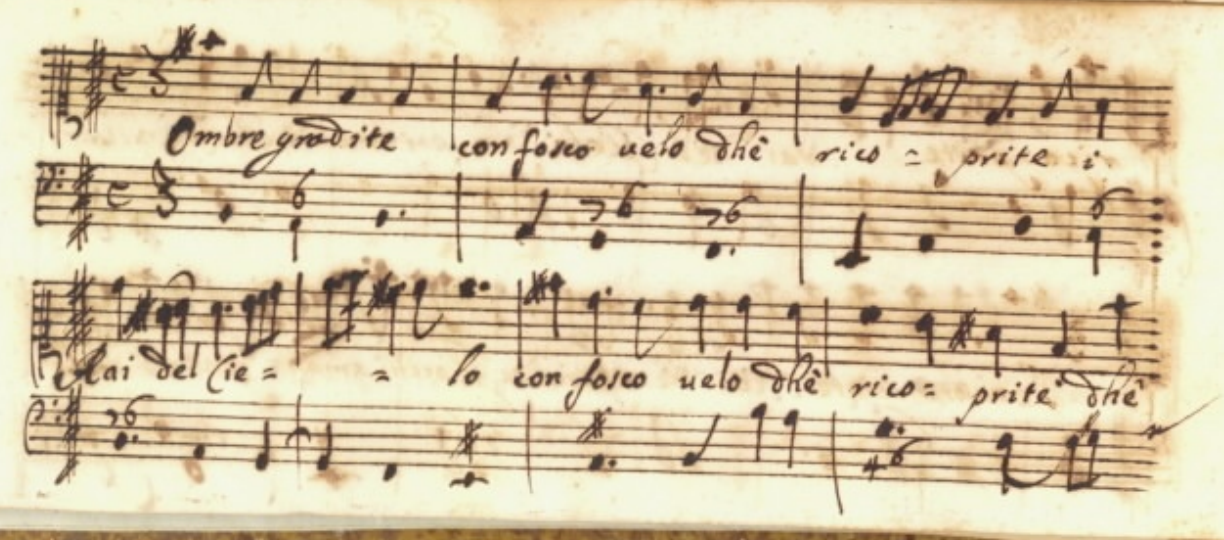 Ombre gradite con fosco velo dhê rico = prite i
Rai del Cie = = lo con fosco velo dhê rico = prite dhê